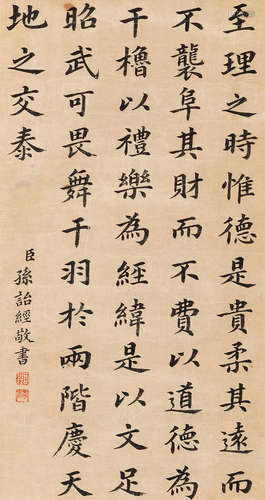 至理之時惟德是貴柔其遠而
不襲阜其財而不費以道德為
干櫓以禮樂為經緯是以文足
昭武可畏舞干羽於兩階慶天
地之交泰
臣孫詒經敬書